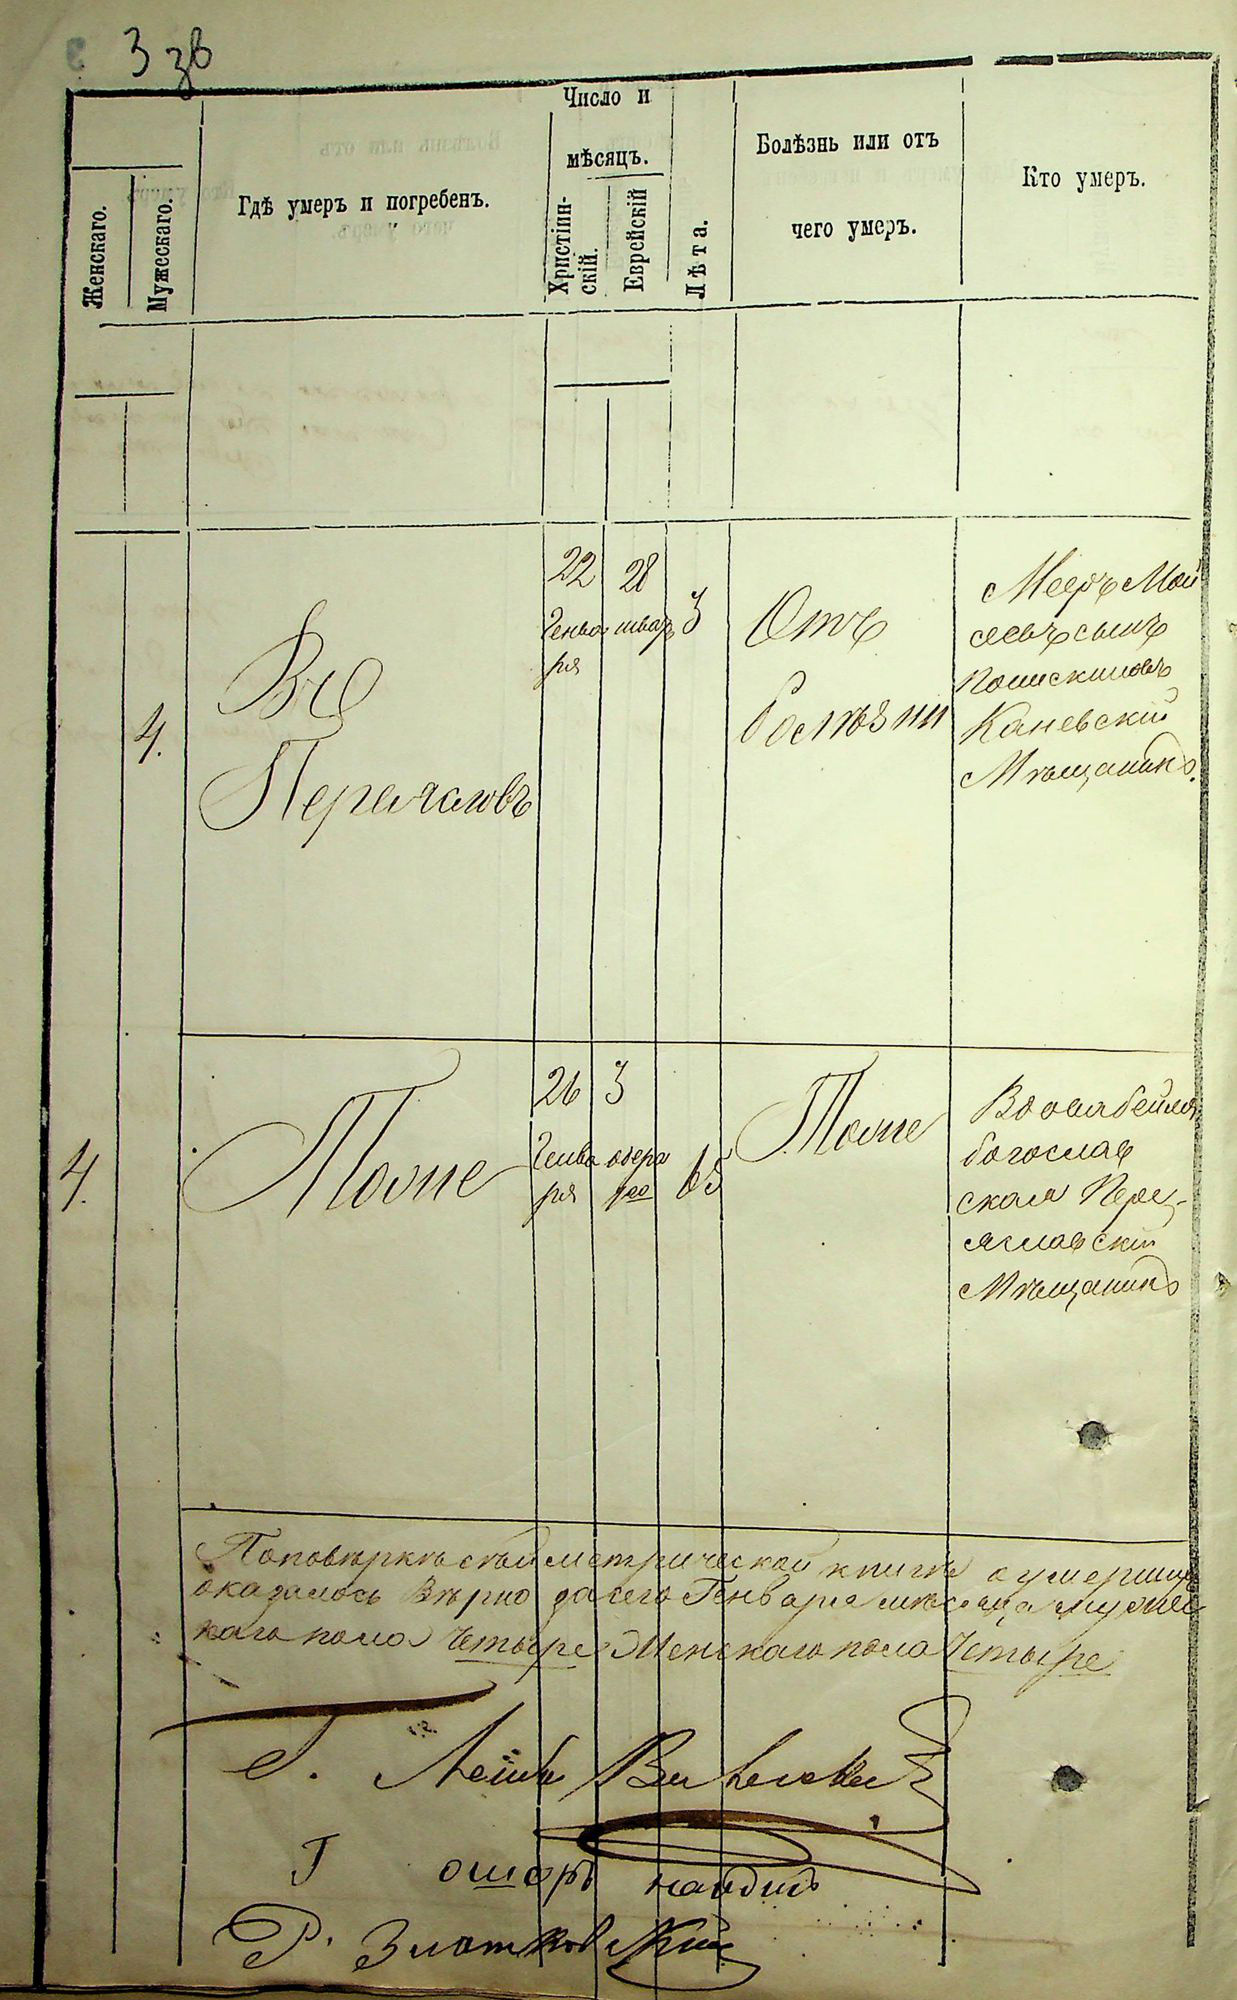 3 зв
Число и
мѣсяцъ.
Женскаго.
Мужескаго.
Гдѣ умеръ и погребенъ.
Христіян-
скій.
Еврейскій
Лѣта.
Болѣзнь или отъ
чего умеръ.
Кто умеръ.
4.
Въ
Переяславѣ
22
Генва
ря
28
шват
3
Отъ
болѣзни
Мееръ Мой
сеевъ сынъ
Каневскій
Мѣщанинъ.
4.
Тоже
26
Генва
ря
3
адера
1го
65
Тоже
богослав
ская Пере
яславскій
Мѣщанинъ
По повѣркѣ сей метрической книгѣ о умершихъ
оказалось Вѣрно за сего Генваря мѣсяца мужес
каго пола Четыре Женскаго пола Четыре
Г. Лейба
Г
Р. Златковскій